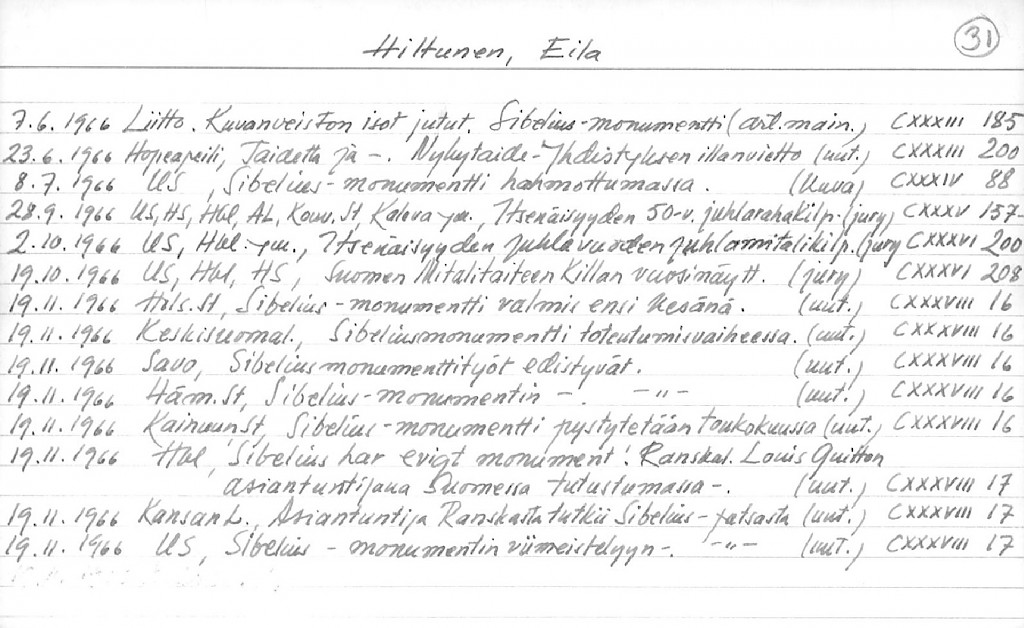 31
Hiltunen, Eila
7.6.1966 Liitto. Kuvanveiston isot jutut. Sibelius-monumentti (art.main.) CXXXIII 185
23.6.1966 Hopeapeili, Taidetta ja -. Nykytaide-Yhdistyksen illanvietto (uut.) CXXXIII 200
8.7.1966 US, Sibelius-monumentti hahmottumassa. (Kuva) CXXXIV 88
28.9.1966 US, HS, Hbl, AL, Kouv.St, Kahva ym., Itsenäisyyden 50-v. juhlarahakilp. (jury) CXXXV 157-
2.10.1966 US, Hbl ym., Itsenäisyyden juhlavuoden juhlamitalikilp. (jury CXXXVI 200
19.10.1966 US, Hbl, HS, Suomen Mitalitaiteen Killan vuosinäytt. (jury) CXXXVI 208
19.11.1966 St, Sibelius-monumentti valmis ensi kesänä. (uut.) CXXXVIII 16
19.11.1966 Keskisuomal., Sibeliusmonumentti toteutumisvaiheessa. (uut.) CXXXVIII 16
19.11.1966 Savo, Sibeliusmonumenttityöt edistyvät. (uut.) CXXXVIII 16
19.11.1966 Häm.St, Sibelius-monumentin -. -"- (uut.) CXXXVIII 16
19.11.1966 Kainuun St, Sibelius-monumentti pystytetään toukokuussa (uut.) CXXXVIII 16
19.11.1966 Hbl, Sibelius har evigt monument! Ranskal. Louis Quitton
asiantuntijana Suomessa tutustumassa -. (uut.) CXXXVIII 17
19.11.1966 Kansan L., Asiantuntija Ranskasta tutkii Sibelius-patsasta (uut.) CXXXVIII 17
19.11.1966 US, Sibelius-monumentin viimeistelyyn -. -"- (uut.) CXXXVIII 17